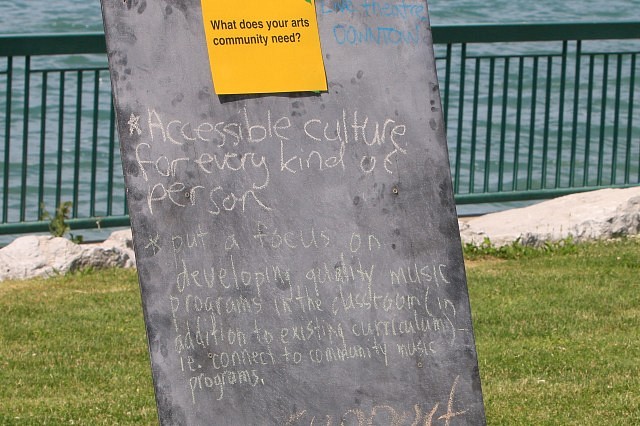 What does your arts
community need?
Live theatre
DOWNTOWN
* Accessible culture
for every kind of
person
* put a focus on
developing quality music
programs in the classroom (in
addition to existing curriculum)
ie. connect to community music
programs.
support